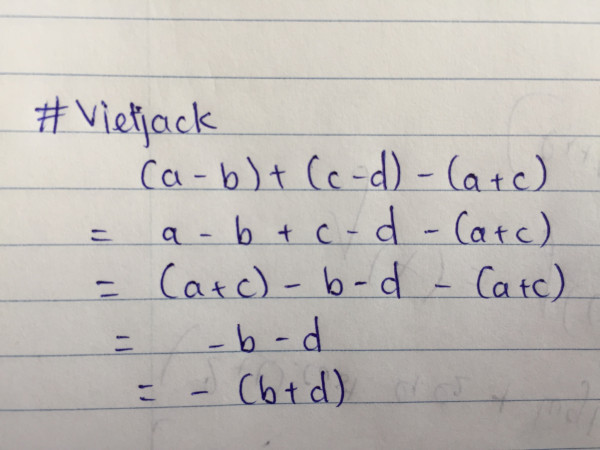 # Vietjack
(a - b) + (c - d) - (a + c)
= a - b + c - d - (a + c)
= (a + c) - b - d - (a + c)
= - b - d
= - (b + d)